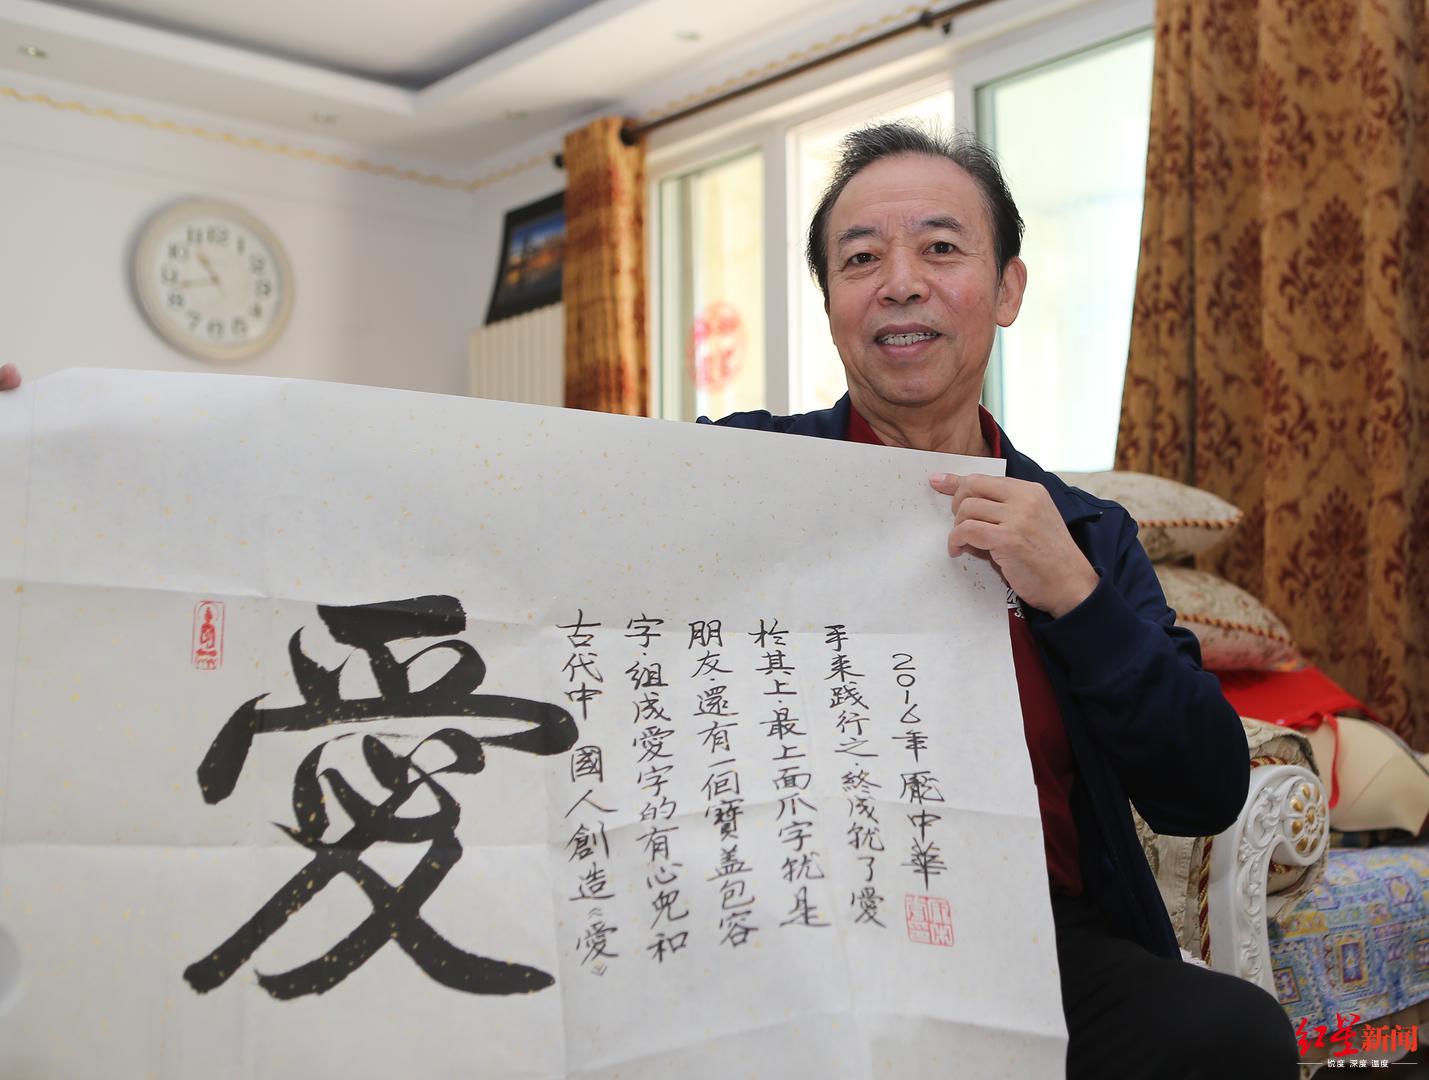 愛
古代中國人創造《愛》
字.組成愛字的有心兒和
朋友.還有一個寶盖包容
於其上.最上面爪字就是
手来践行之.終成就了愛
2016年龐中華
红星新闻
锐度 深度 温度